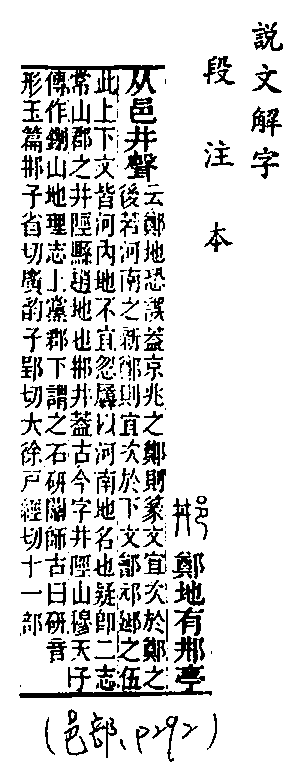 說文解字
段注本
鄭地有郱亭
从邑井聲
云鄭地恐誤蓋京兆之鄭則篆文宜次於鄭之
後若河南之新鄭則宜次於下文部祁鄔之伍
此上下文皆河內地不宜忽羼以河南地名也疑卽二志
常山郡之井陘縣趙地也郱井蓋古今字井陘山穆天子
傳作鈃山地理志上黨郡下謂之石研關師古曰研音
形玉篇郱子省切廣韵子郢切大徐戶經切十一部
(邑部、p292)